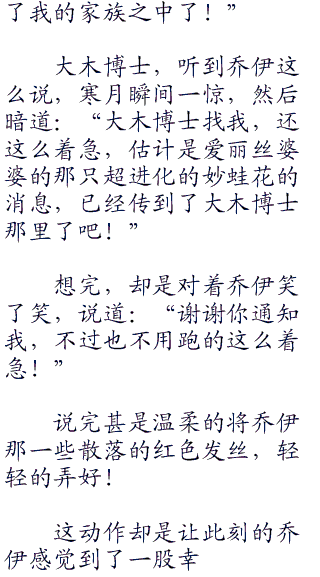 了我的家族之中了！”
大木博士，听到乔伊这
么说，寒月瞬间一惊，然后
暗道：“大木博士找我，还
这么着急，估计是爱丽丝婆
婆的那只超进化的妙蛙花的
消息，已经传到了大木博士
那里了吧！”
想完，却是对着乔伊笑
了笑，说道：“谢谢你通知
我，不过也不用跑的这么着
急！”
说完甚是温柔的将乔伊
那一些散落的红色发丝，轻
轻的弄好！
这动作却是让此刻的乔
伊感觉到了一股幸